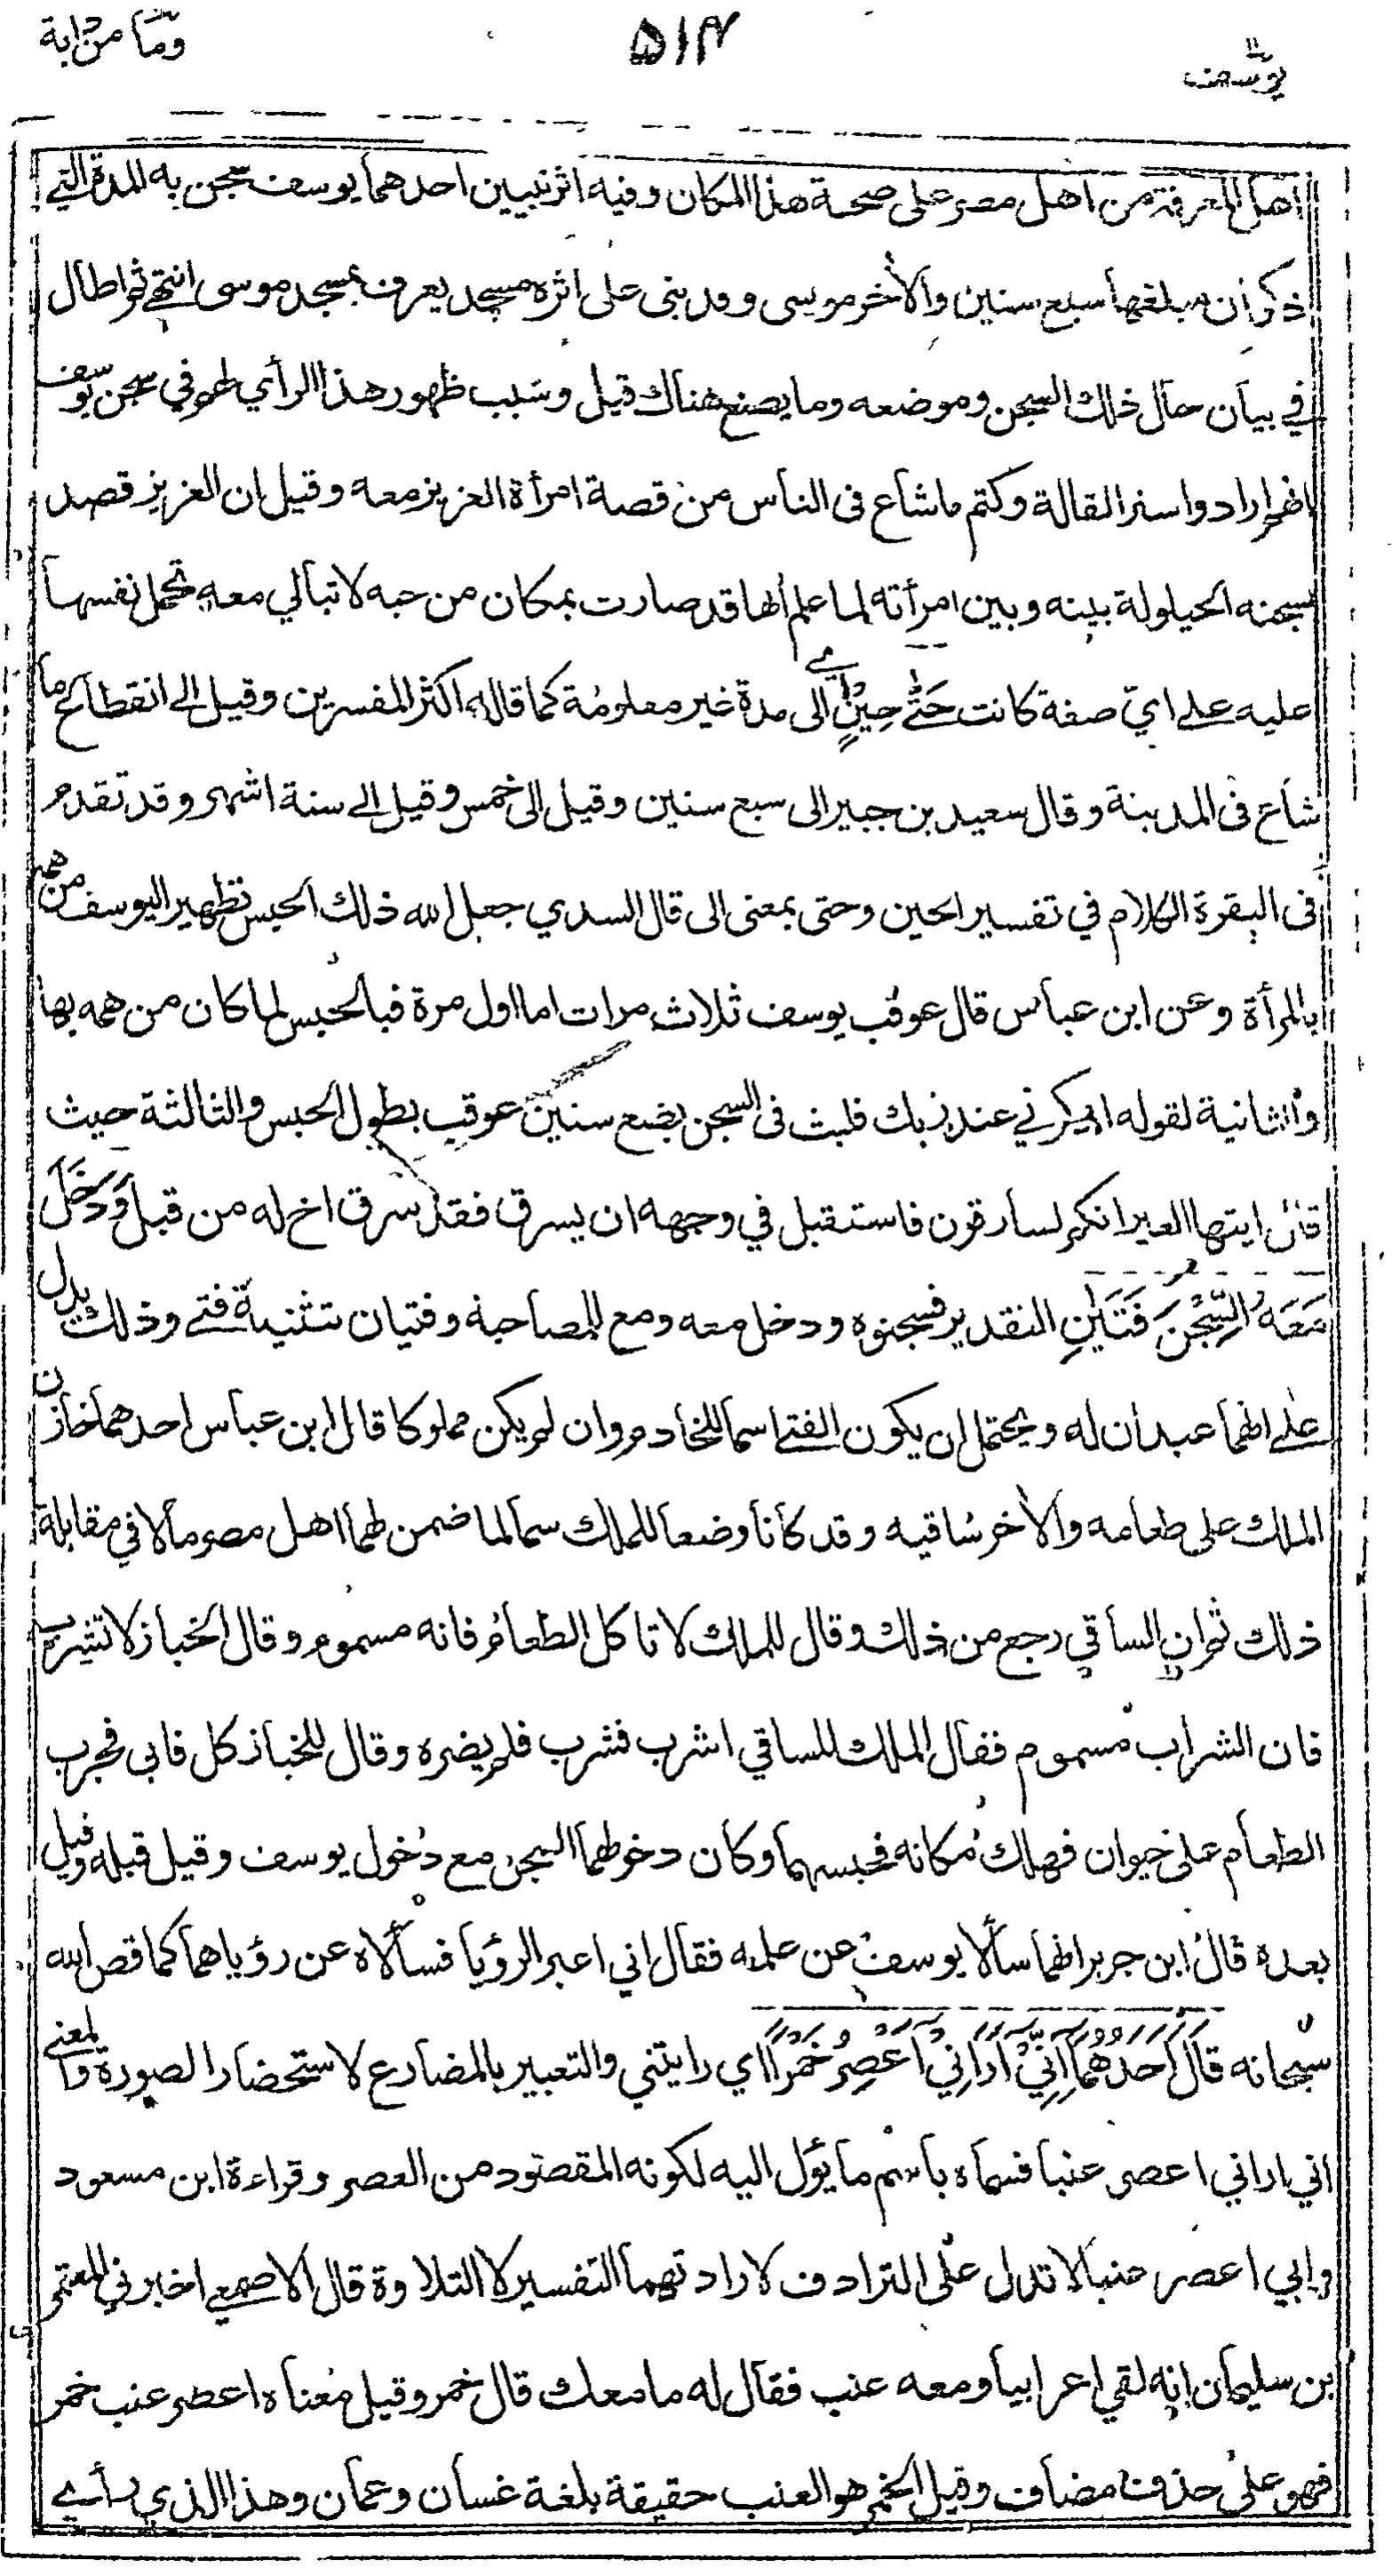 يوسف
٥١٤
وما من دابة
اهل المعرفة من اهل مصر على صحة هذا المكان وفيه اثر نبيين احدهما يوسف سجن به المدة التي
ذكر ان مبلغها سبع سنين والأخر موسى وقد بنى على اثره مسجد يعرف بمسجد موسى انتهى ثم اطال
في بيان حال ذلك السجن وموضعه وما يصنع هناك قيل وسبب ظهور هذا الرأي لهم في سجن يوسف
انهم ارادوا ستر القالة وكتم ما شاع فى الناس من قصة امرأة العزيز معه وقيل ان العزيز قصد
بسجنه الحيلولة بينه وبين امرأته لما علم انها قد صارت بمكان من حبه لا تبالي معه تحمل نفسها
عليه على اي صفة كانت حَتّٰى حِيْنٍ اي الى مدة غير معلومة كما قاله اكثر المفسرين وقيل الى انقطاع ما
شاع فى المدينة وقال سعيد بن جبير الى سبع سنين وقيل الى خمس وقيل الى ستة اشهر وقد تقدم
فى البقرة الكلام في تفسير الحين وحتى بمعنى الى قال السدي جعل الله ذلك الحبس تطهيرا ليوسف من همه
بالمرأة وعن ابن عباس قال عوقب يوسف ثلاث مرات اما اول مرة فبالحبس لما كان من همه بها
والثانية لقوله اذكرني عند ربك فلبث فى السجن بضع سنين عوقب بطول الحبس والثالثة حيث
قال ايتها العير انكم لسارقون فاستقبل في وجهه ان يسرق فقد سرق اخ له من قبل وَدَخَلَ
مَعَهُ السِّجْنَ فَتَيَانِ التقدير فسجنوه ودخل معه ومع للمصاحبة وفتيان تثنية فتى وذلك يدل
على انهما عبدان له ويحتمل ان يكون الفتى اسما للخادم وان لم يكن مملوكا قال ابن عباس احدهما خازن
الملك على طعامه والأخر ساقيه وقد كانا وضعا للملك سما لما ضمن لهما اهل مصر مالا في مقابلة
ذلك ثم ان الساقي رجع من ذلك وقال للملك لا تاكل الطعام فانه مسموم وقال الخباز لا تشرب
فان الشراب مسموم فقال الملك للساقي اشرب فشرب فلم يضره وقال للخباز كل فابى فجرب
الطعام على حيوان فهلك مكانه فحبسهما وكان دخولهما السجن مع دخول يوسف وقيل قبله وقيل
بعده قال ابن جرير انهما سألا يوسف عن علمه فقال اني اعبر الرؤيا فسألاه عن رؤياهما كما قص الله
سبحانه قَالَ اَحَدُهُمَا اِنِّيْ اَرَانِيْ اَعْصِرُ خَمْرًا اي رايتني والتعبير بالمضارع لاستحضار الصورة والمعنى
اني اراني اعصر عنبا فسماه باسم ما يؤل اليه لكونه المقصود من العصر وقراءة ابن مسعود
وابي اعصر عنبا لا تدل على الترادف لارادتهما التفسير لا التلاوة قال الاصمعي اخبرني المعتمر
بن سليمان انه لقي اعرابيا ومعه عنب فقال له ما معك قال خمر وقيل معناه اعصر عنب خمر
فهو على حذف مضاف وقيل الخمر هو العنب حقيقة بلغة غسان وعمان وهذا الذي رأى